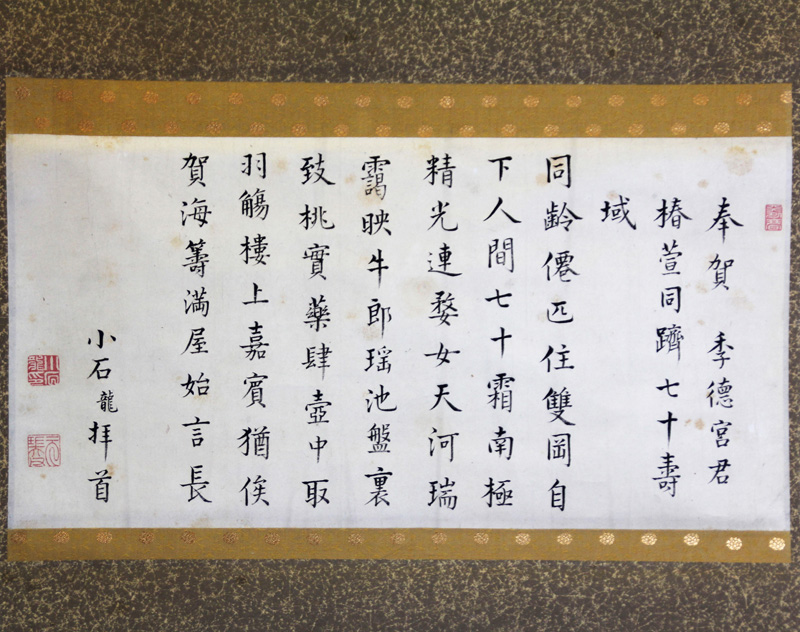 奉賀　季德宮君
椿萱同躋七十壽
域
同齡僊匹住雙岡自
下人間七十霜南極
精光連婺女天河瑞
靄映牛郎瑶池盤裏
致桃實藥肆壺中取
羽觴樓上嘉賓猶俟
賀海籌満屋始言長
小石龍拜首